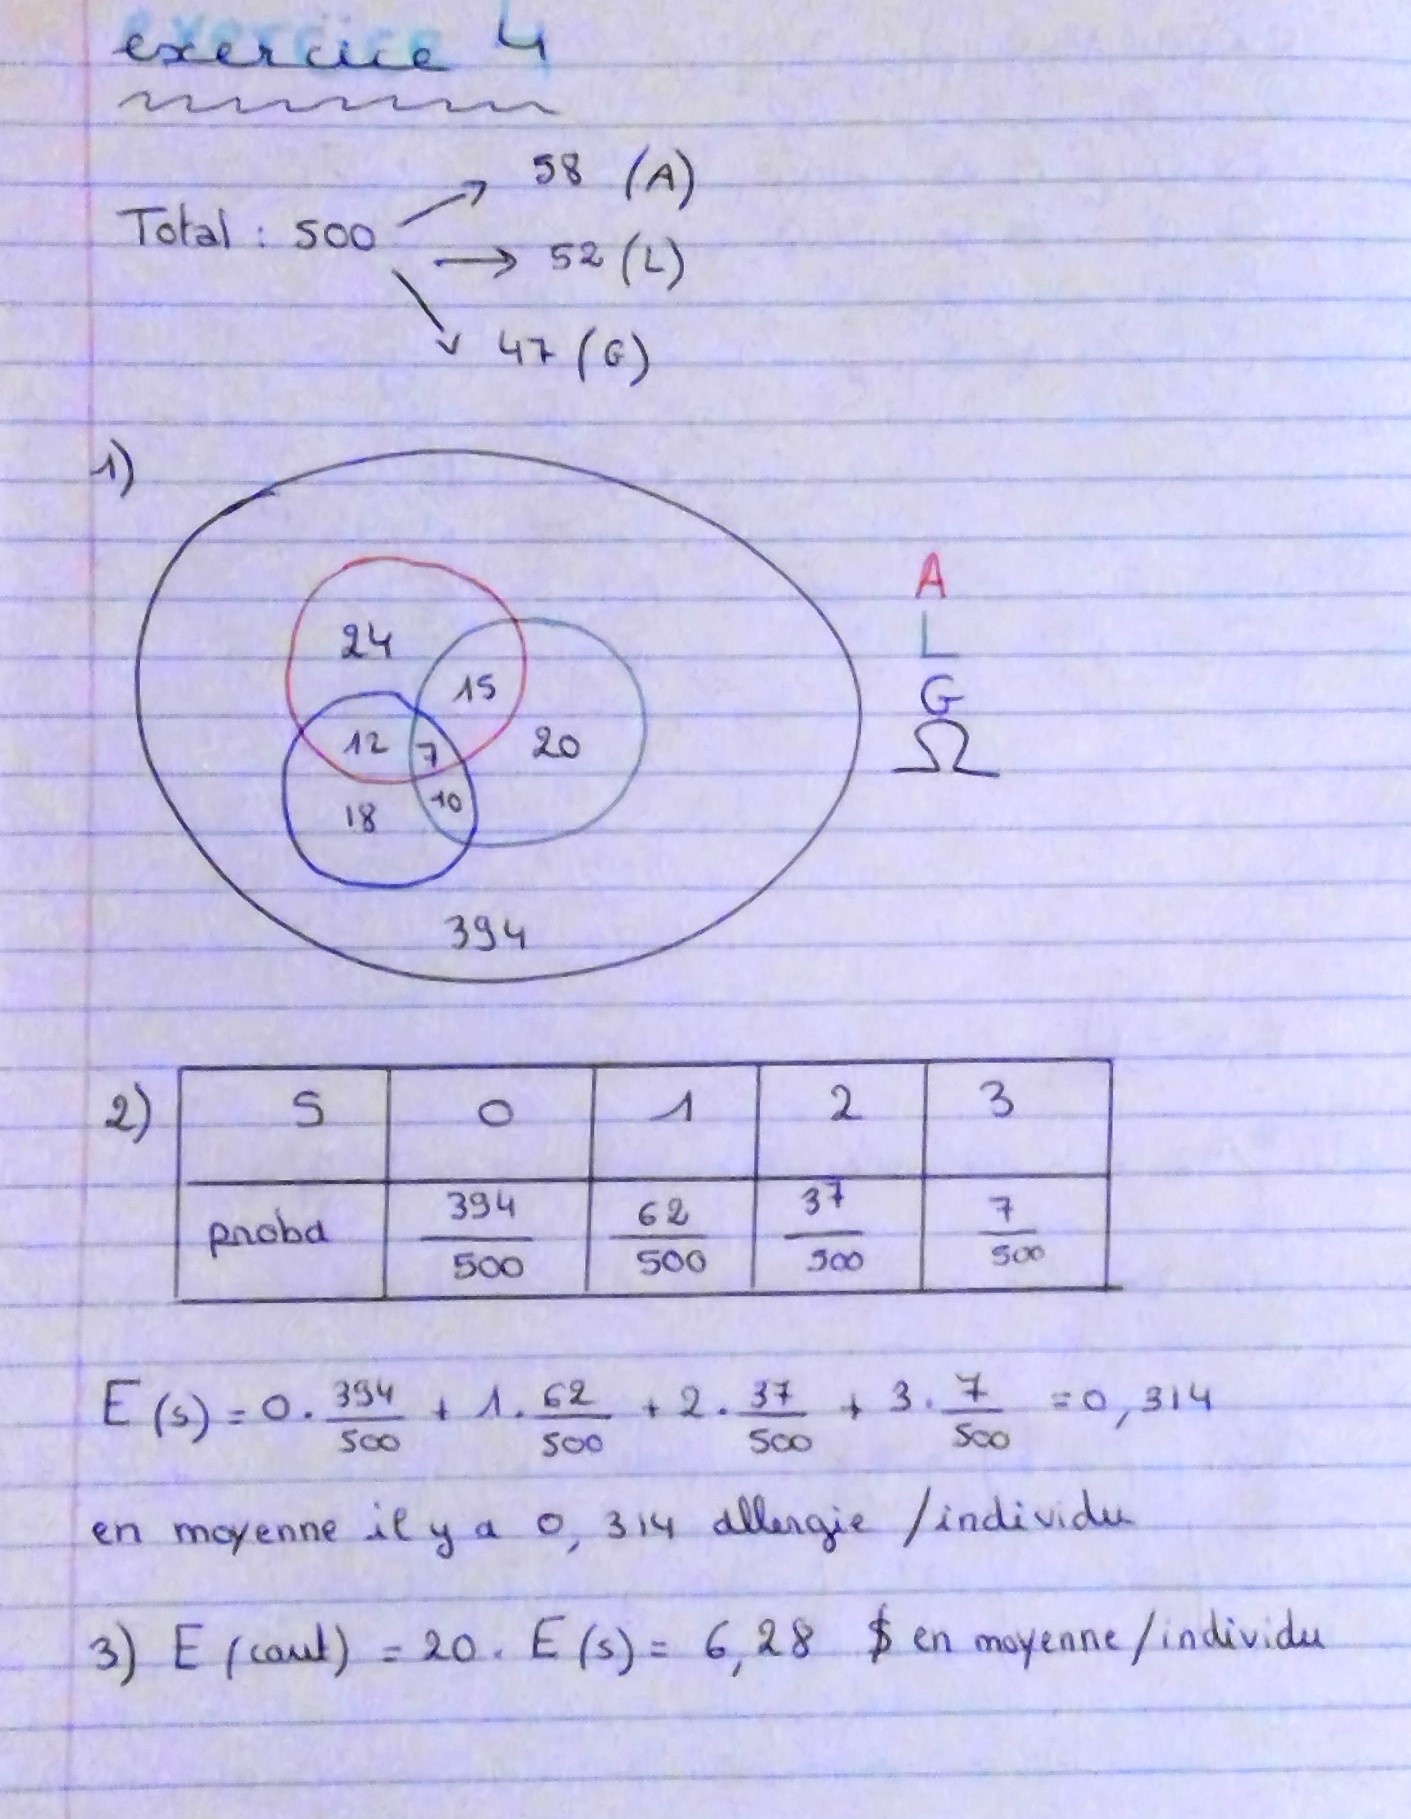 exercice 4
Total : 500
58 (A)
52 (L)
47 (G)
1)
24
15
12
7
20
10
18
394
A
L
G
Ω
2)
S 0 1 2 3
proba 394/500 62/500 37/500 7/500
E(s) = 0 . 394/500 + 1 . 62/500 + 2 . 37/500 + 3 . 7/500 = 0,314
en moyenne il y a 0,314 allergie /individu
3) E (cout) = 20 . E(s) = 6,28 $ en moyenne/individu